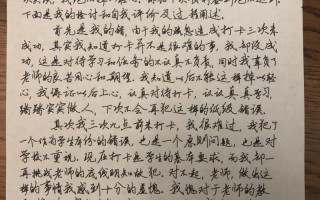 下面是我的检讨和自我评价及过程阐述。
首先是我的错，由于我的疏忽造成打卡三次未
成功，其实我知道打卡并不是很难的事，我却没成
功，这是对待学习和任务的不认真不负责，同时我辜负了
老师的良苦用心和期望，我知道以后不能这样掉以轻
心，我保证以后上心，认真对待打卡，认认真真学习，
踏踏实实做人，下次不会再犯这样的低级错误。
其次我三次九点前未打卡，我很难过，我犯了
一个作为学生本份的错误，也是一个原则问题，也是对
学校不重视。现在打卡是学生的基本要求，而我却一
再挑战老师的底线明知故犯。对不起，老师，做出这
样的事情我感到十分的羞愧。我愧对于老师的教